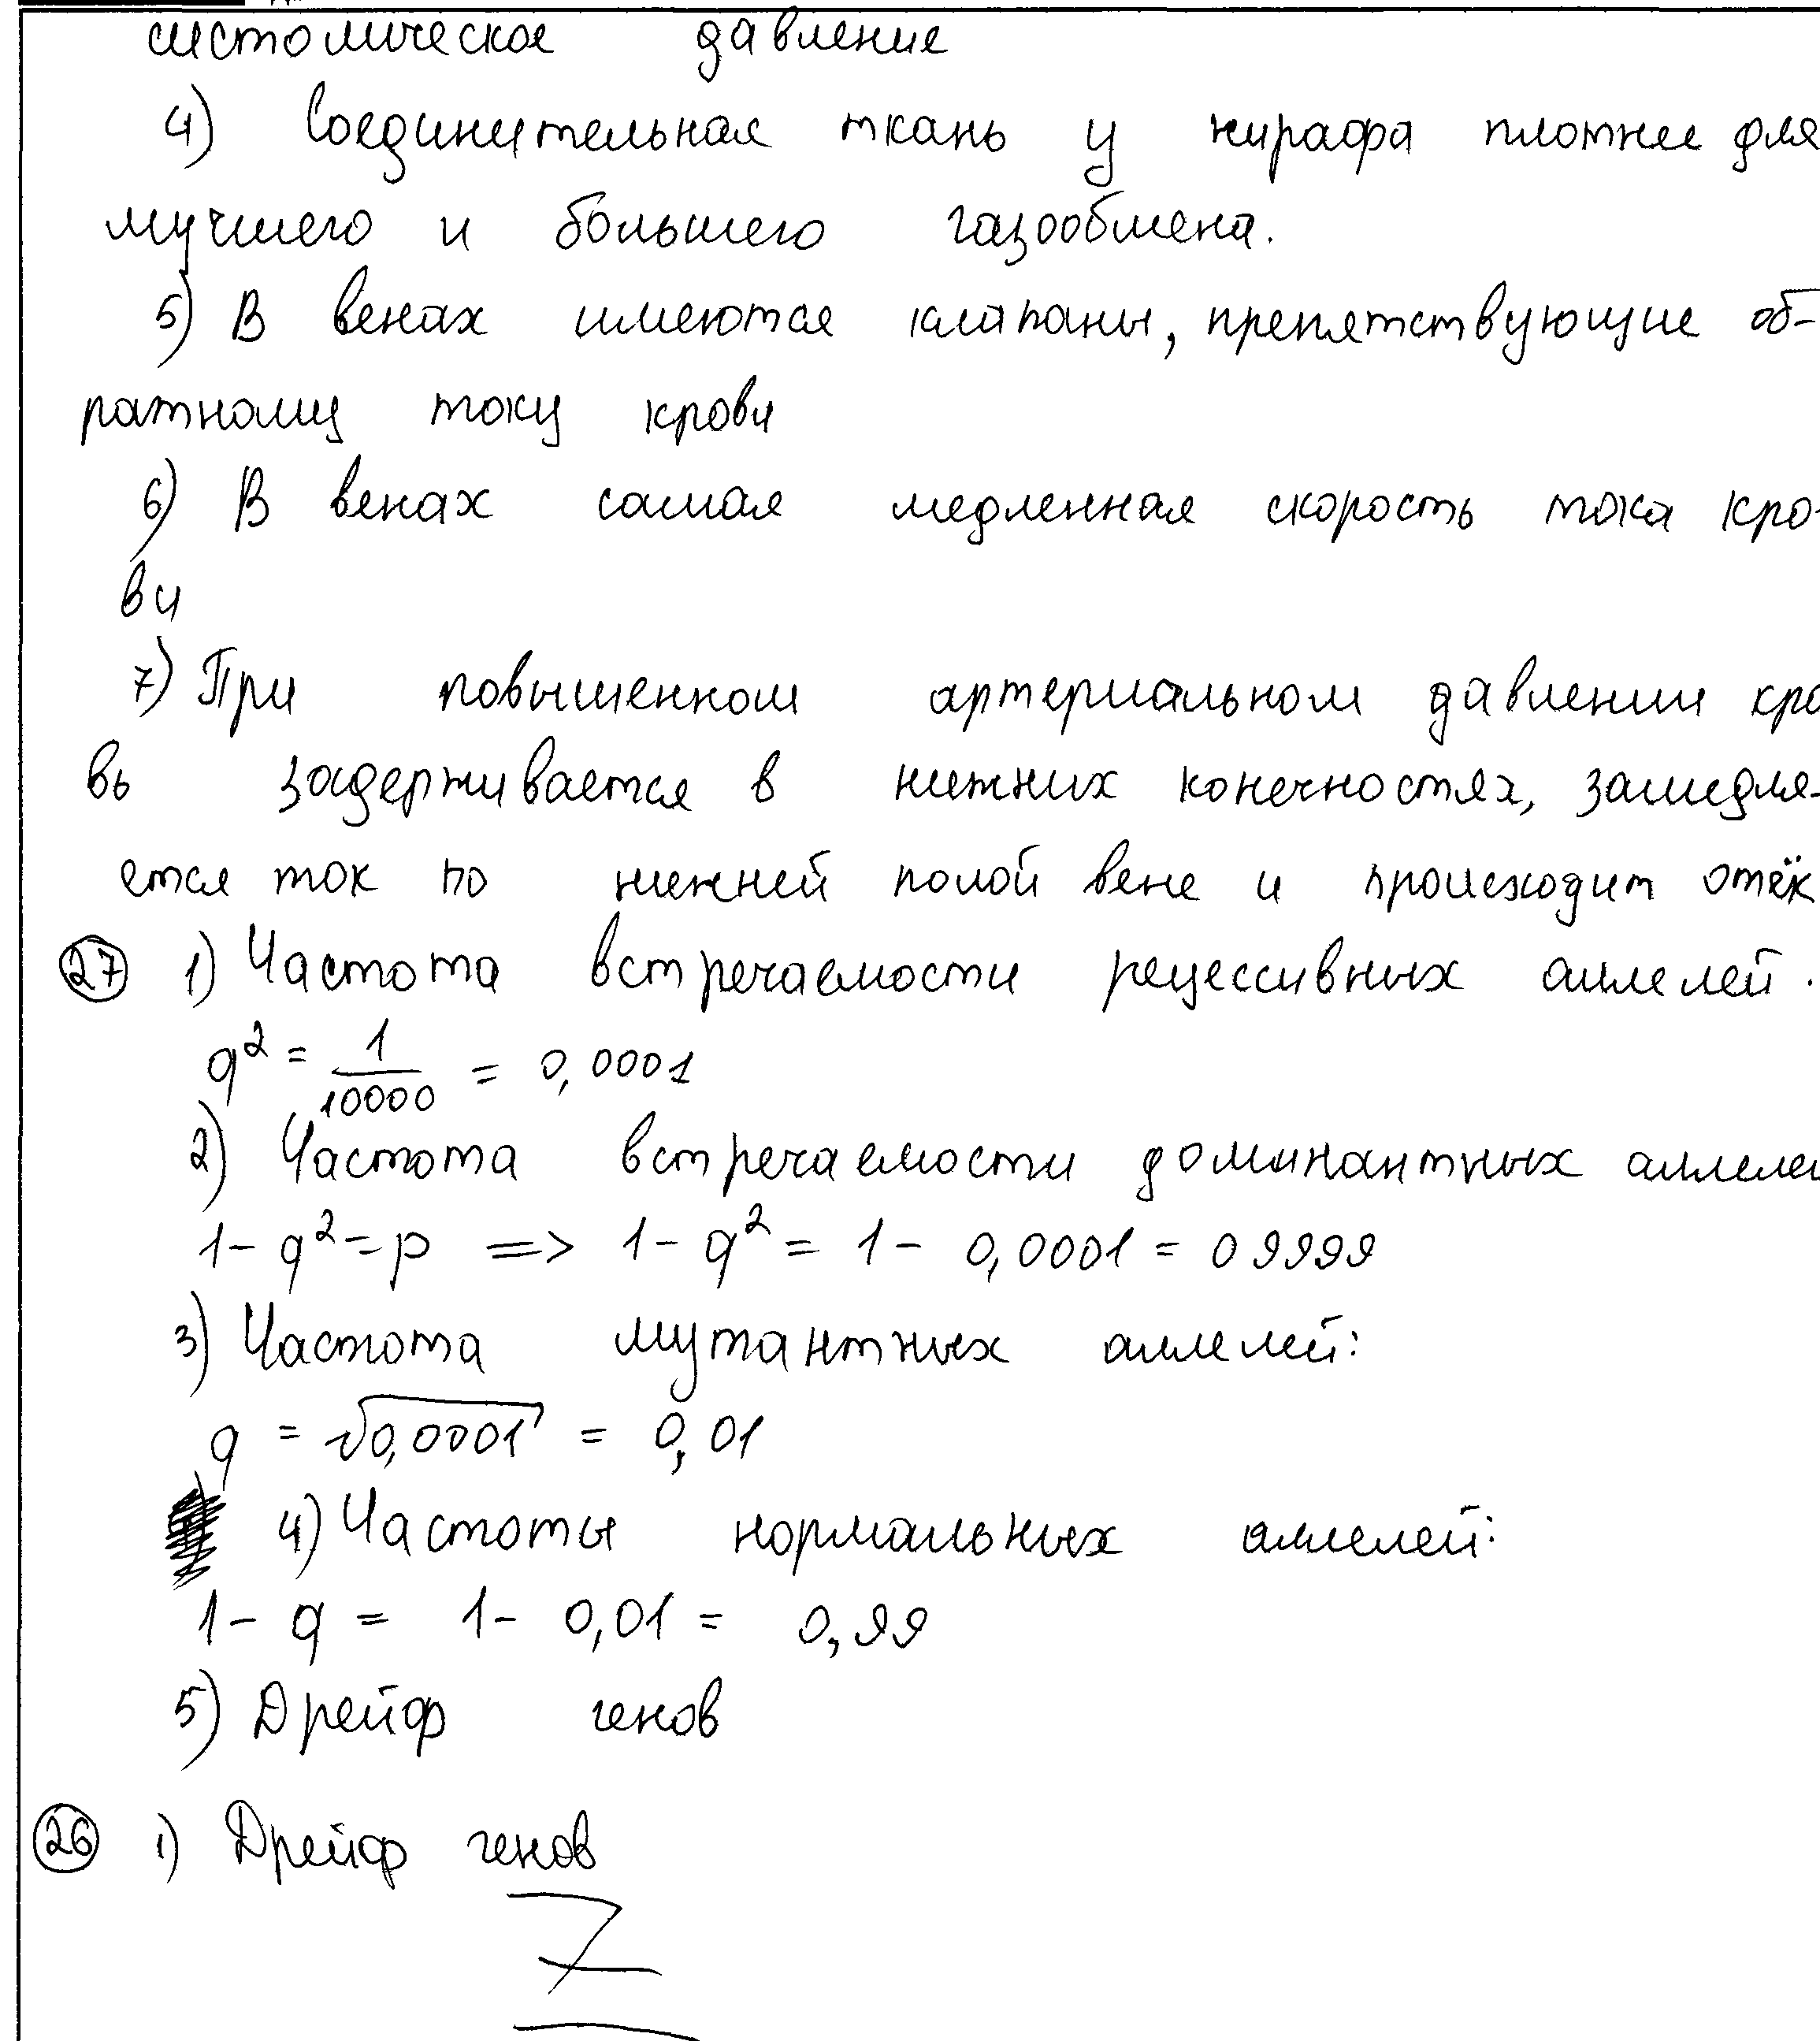 систолическое давление
4) Соединительная ткань у жирафа плотнее для
лучшего и большего газообмена.
5) В венах имеются клапаны, препятствующие об-
ратному току крови
6) В венах самая медленная скорость тока кро-
ви
7) При повышенном артериальном давлении кро
вь задерживается в нижних конечностях, замедля-
ется ток по нижней полой вене и происходит отёк
27 1) Частота встречаемости рецессивных аллелей.
q² = 1/10000 = 0,0001
2) Частота встречаемости доминантных аллелей
1 - q² = p => 1 - q² = 1 - 0,0001 = 0 9999
3) Частота мутантных аллелей:
q = √0,0001 = 0,01
4) Частоты нормальных аллелей:
1 - q = 1 - 0,01 = 0,99
5) Дрейф генов
26 1) Дрейф генов